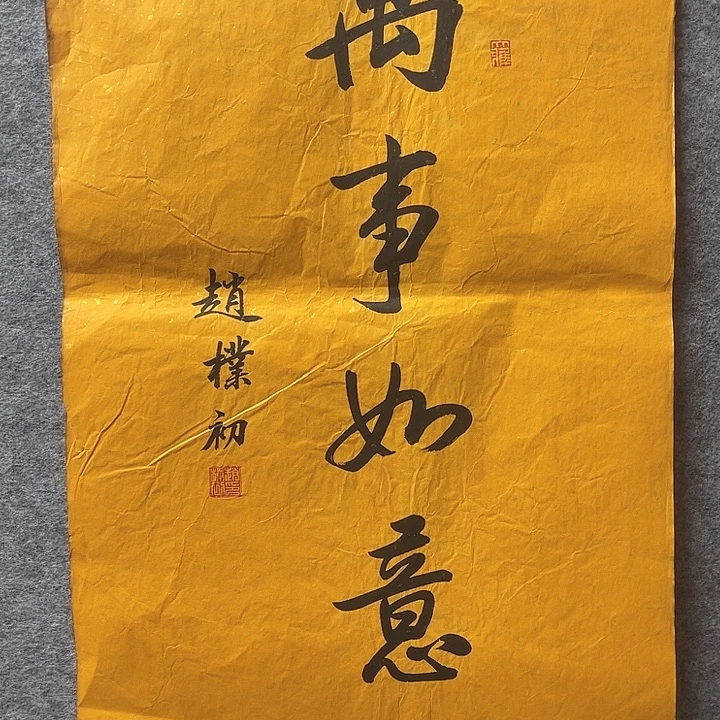 萬事如意
趙樸初